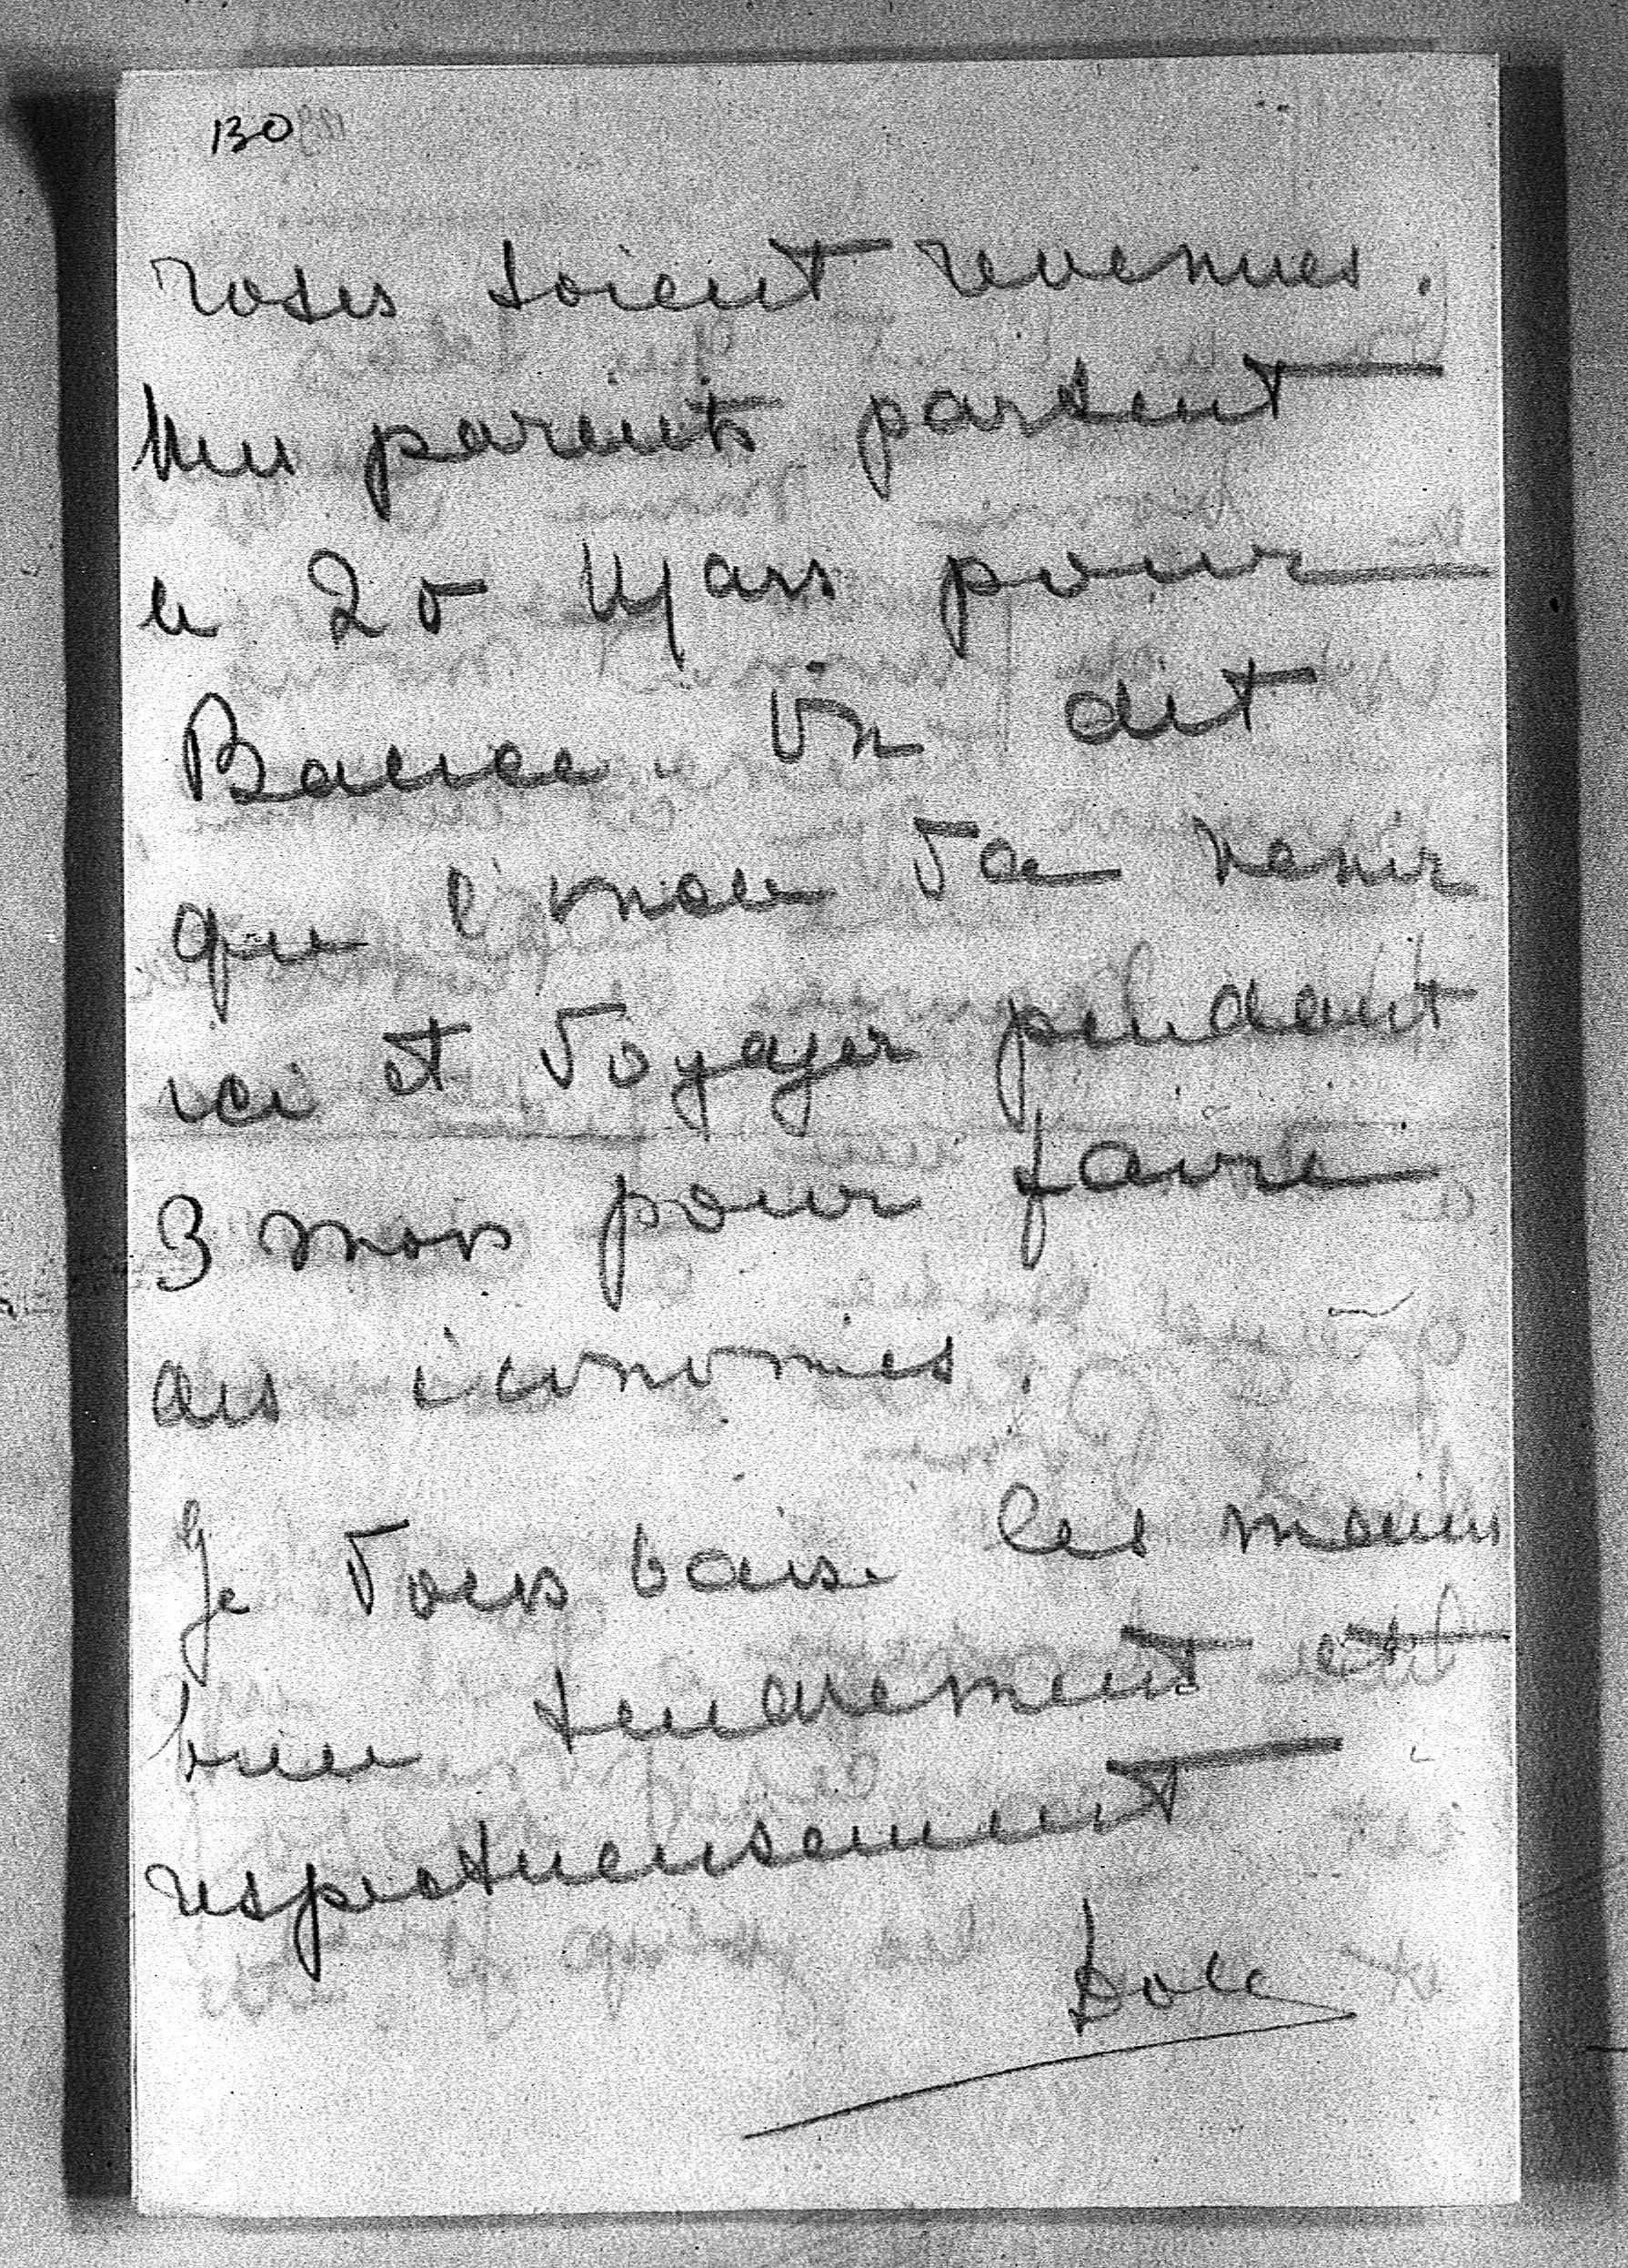 130
roses soient revenues.
Mes parents partent
le 20 Mars pour
On dit
que l'oncle va venir
ici et voyager pendant
3 mois pour faire
des économies.
Je vous baise les mains
bien tendrement et
respectueusement